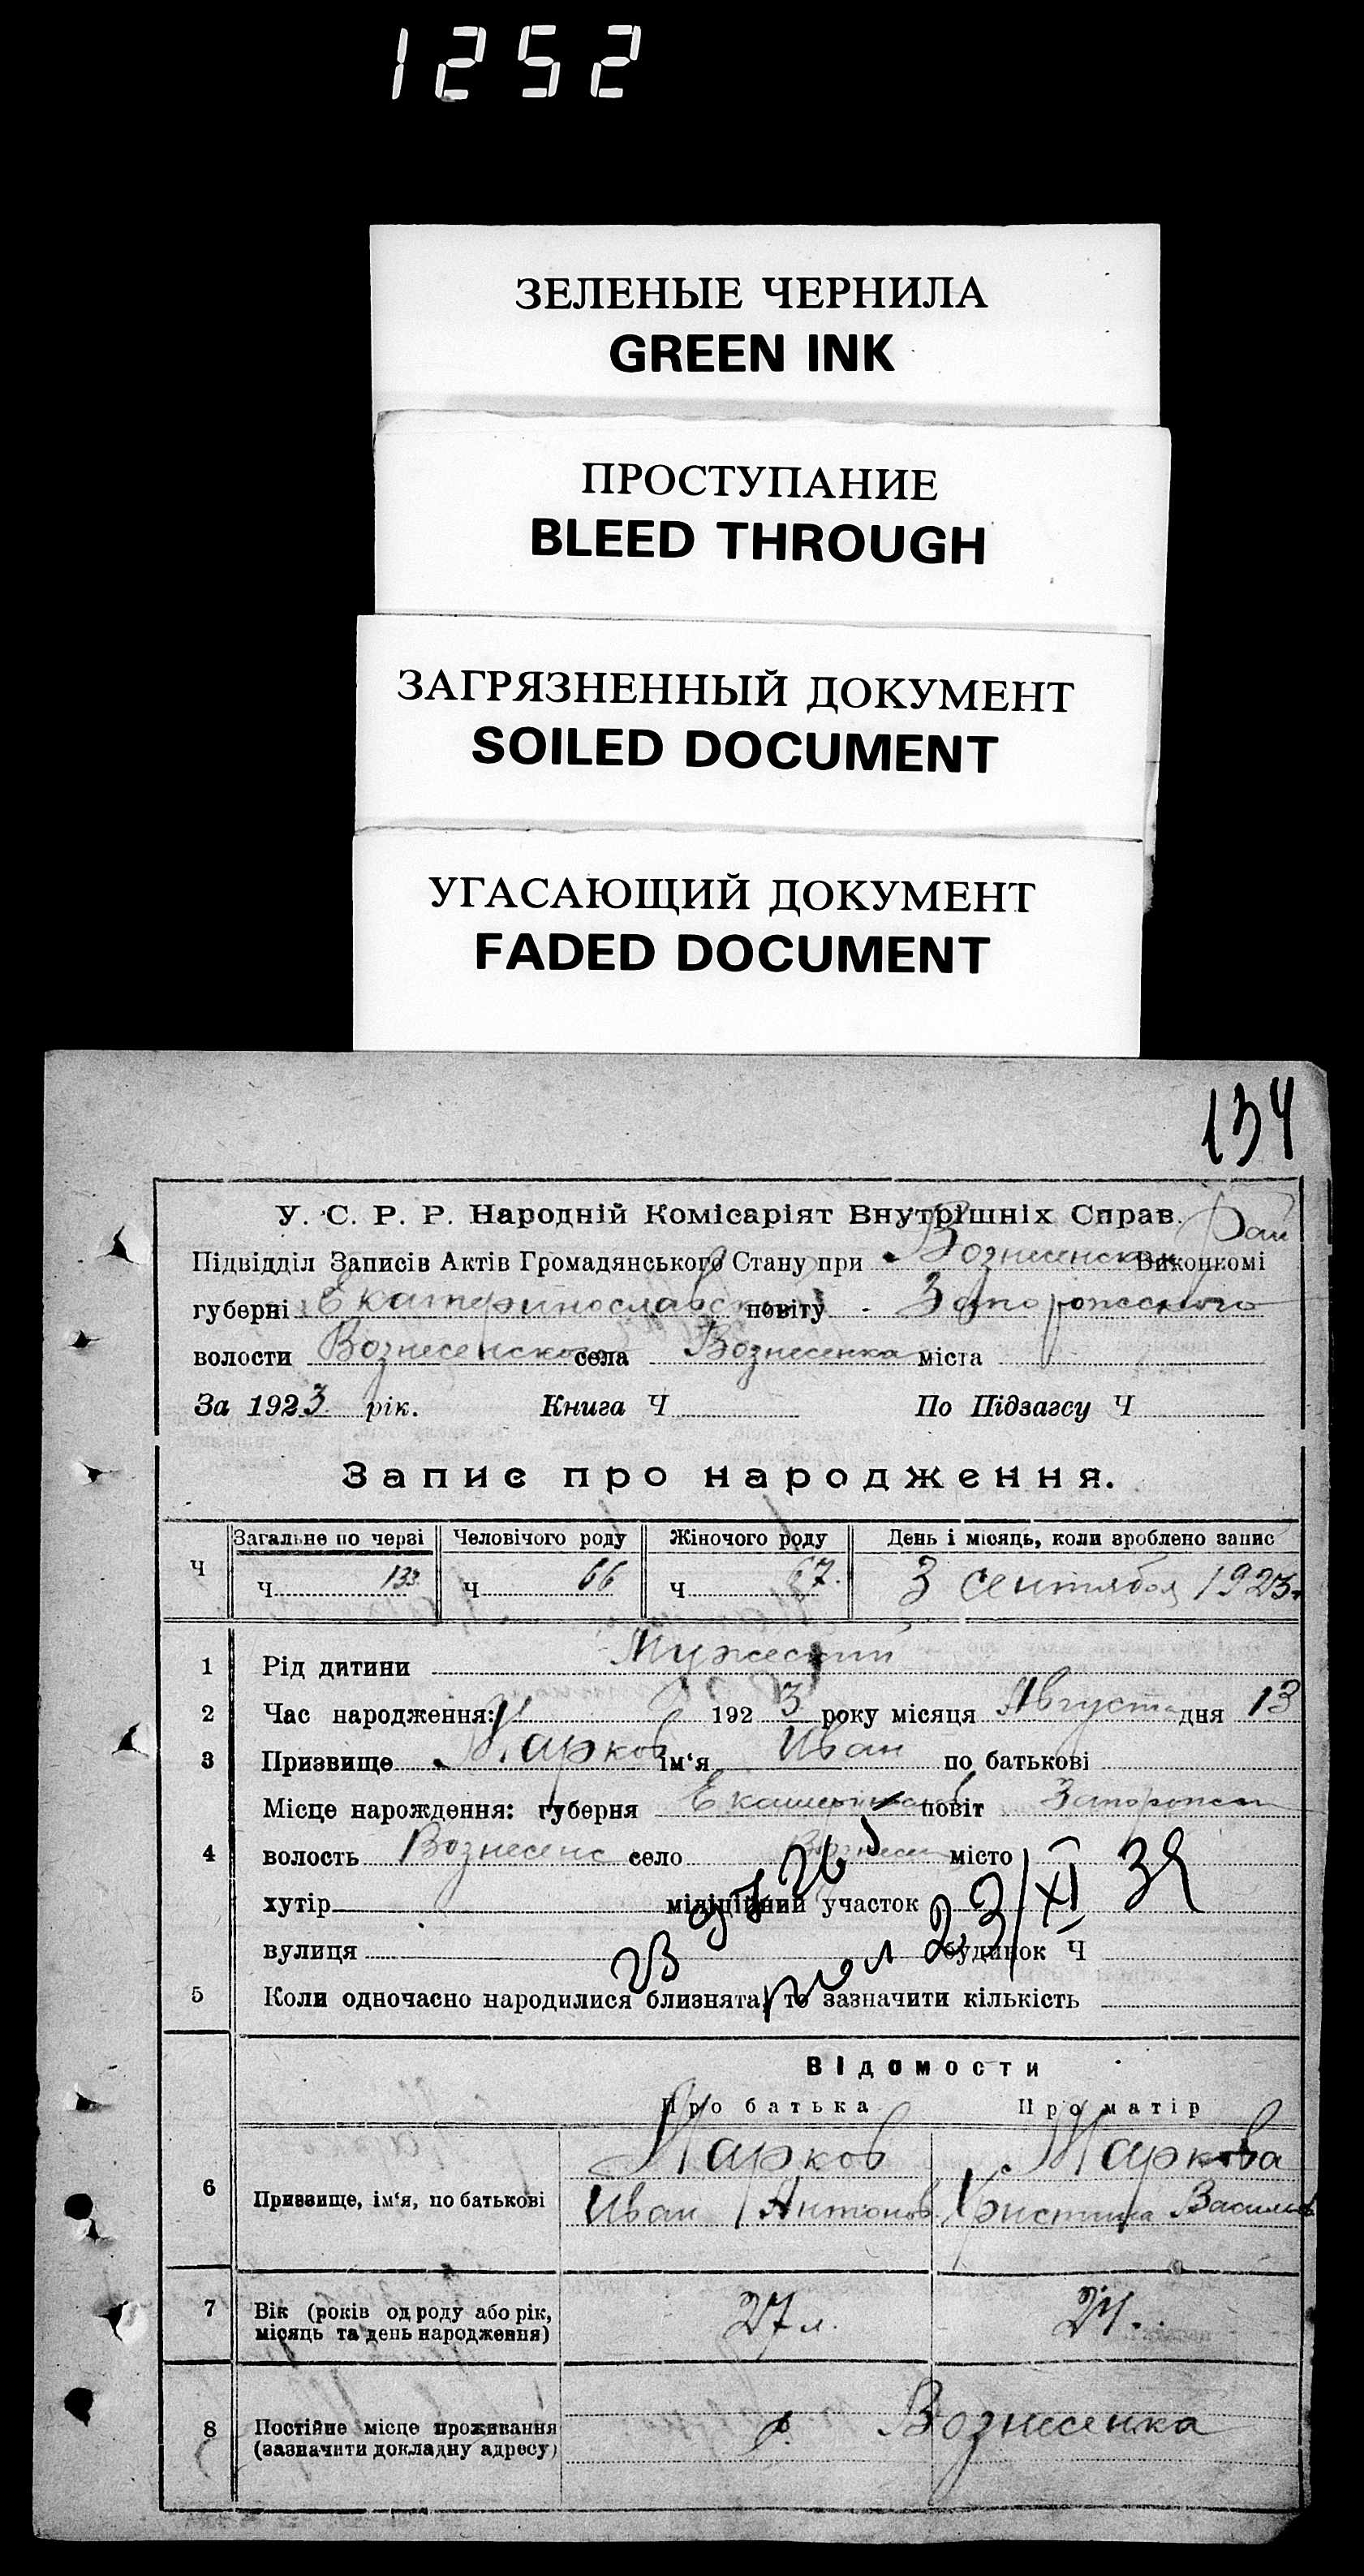 1252
ЗЕЛЕНЫЕ ЧЕРНИЛА
GREEN INK
ПРОСТУПАНИЕ
BLEED THROUGH
ЗАГРЯЗНЕННЫЙ ДОКУМЕНТ
SOILED DOCUMENT
УГАСАЮЩИЙ ДОКУМЕНТ
FADED DOCUMENT
134
У. С. Р. Р. Народній Комісаріят Внутрішніх Справ.
Підвідділ Записів Актів Громадянського Стану при Вознесенском Рай Виконкомі
губерні Екатеринославской повіту Запорожского
волости Вознесенской села Вознесенка міста
За 1923 рік. Книга Ч По Підзагсу Ч
Запис про народження.
Ч Загальне по черзі Человічого роду Жіночого роду День і місяць, коли зроблено запис
Ч 133 Ч 66 Ч 67. 3 Сентября 1923 г.
1 Рід дитини Мужеский
2 Час народження: 1923 року місяця Августа дня 13
3 Призвище Марков ім‘я Иван по батькові
Місце нарождення: губерня Екатеринослав повіт Запорожск
4 волость Вознесенс село Вознесен місто
хутір міліційний участок
23/XI 39
вулиця будинок Ч
5 Коли одночасно народилися близнята, то зазначити кількість
Відомости
Про батька Про матір
Марков Маркова
6 Призвище, ім‘я, по батькові Иван Антонов Христина Васильев
7 Вік (років од роду або рік, 27 л. 24.
місяць та день народження)
8 Постійне місце проживання с. Вознесенка
(зазначити докладну адресу)